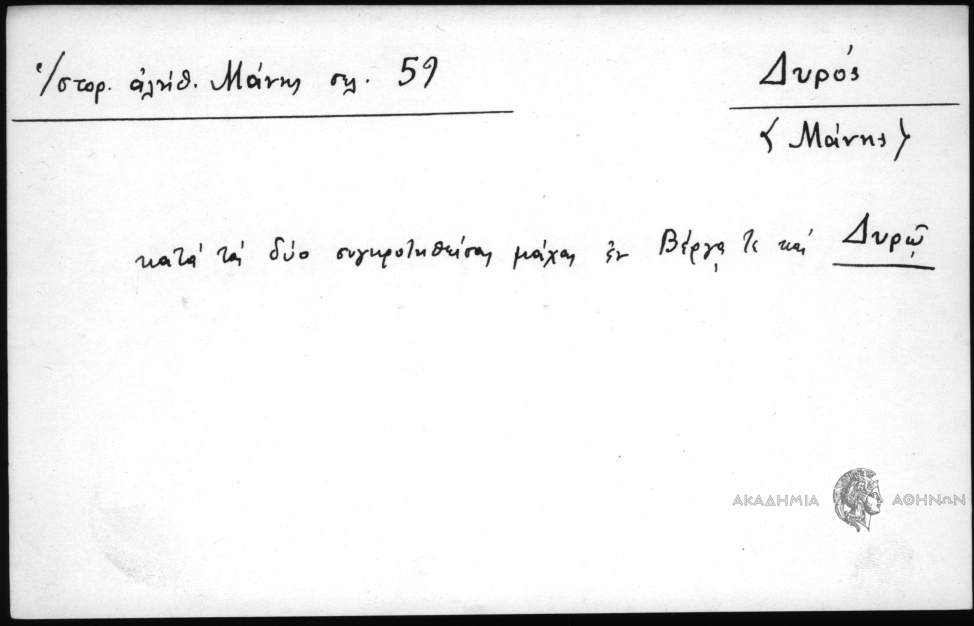 Ἱστορ. ἀλήθ. Μάνης σελ. 59
Δυρός
{Μάνης}
κατά τάς δύο συγκροτηθείσας μάχας ἐν Βέργᾳ τε καί Δυρῷ
ΑΚΑΔΗΜΙΑ ΑΘΗΝΩΝ